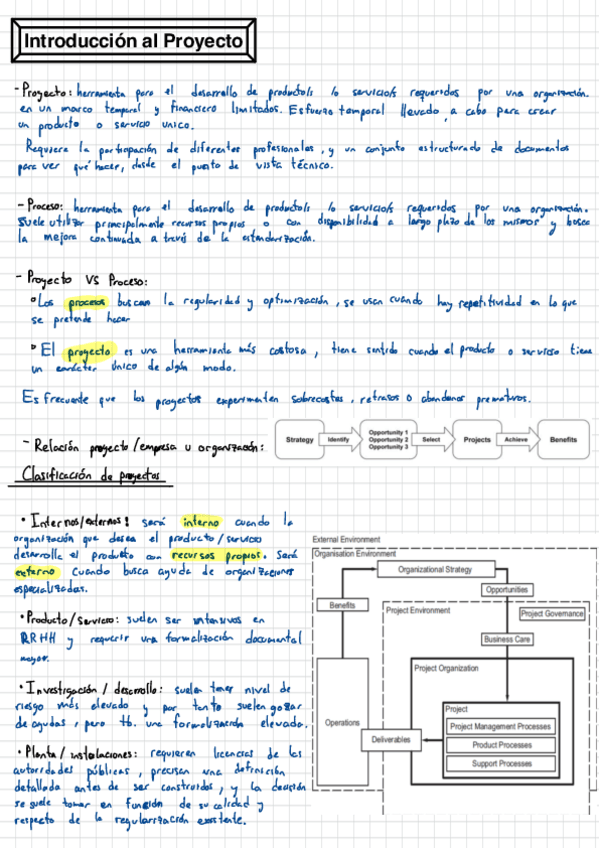 Introducción al Proyecto
- Proyecto: herramienta para el desarrollo de producto/s /o servicio/s requeridos por una organización.
en un marco temporal y financiero limitados. Esfuerzo temporal llevado a cabo para crear
un producto o servicio único.
Requiere la participación de diferentes profesionales, y un conjunto estructurado de documentos
para ver qué hacer, desde el punto de vista técnico.
- Proceso: herramienta para el desarrollo de producto/s /o servicio/s requeridos por una organización.
Suele utilizar principalmente recursos propios o con disponibilidad a largo plazo de los mismos y busca
la mejora continuada a través de la estandarización.
- Proyecto VS Proceso:
Los procesos buscan la regularidad y optimización, se usan cuando hay repetitividad en lo que
se pretende hacer
El proyecto es una herramienta más costosa, tiene sentido cuando el producto o servicio tiene
un carácter único de algún modo.
Es frecuente que los proyectos experimenten sobrecostes, retrasos o abandonos prematuros.
- Relación proyecto/empresa u organización:
Strategy Identify Opportunity 1 Opportunity 2 Opportunity 3 Select Projects Achieve Benefits
Clasificación de proyectos
• Internos/externos: será interno cuando la
organización que desea el producto/servicio
desarrolla el producto con recursos propios. Será
externo cuando busca ayuda de organizaciones
especializadas.
• Producto/servicio: suelen ser intensivos en
RRHH y requerir una formalización documental
mayor.
• Investigación / desarrollo: suelen tener nivel de
riesgo más elevado y por tanto suelen gozar
de ayudas, pero tb. una formalización elevada.
• Planta/ instalaciones: requieren licencias de las
autoridades públicas, precisan una definición
detallada antes de ser construidos, y la decisión
se suele tomar en función de su calidad y
respecto de la regularización existente.
External Environment
Organisation Environment
Organizational Strategy
Opportunities
Benefits
Project Environment
Project Governance
Business Care
Project Organization
Project
Operations
Project Management Processes
Deliverables
Product Processes
Support Processes